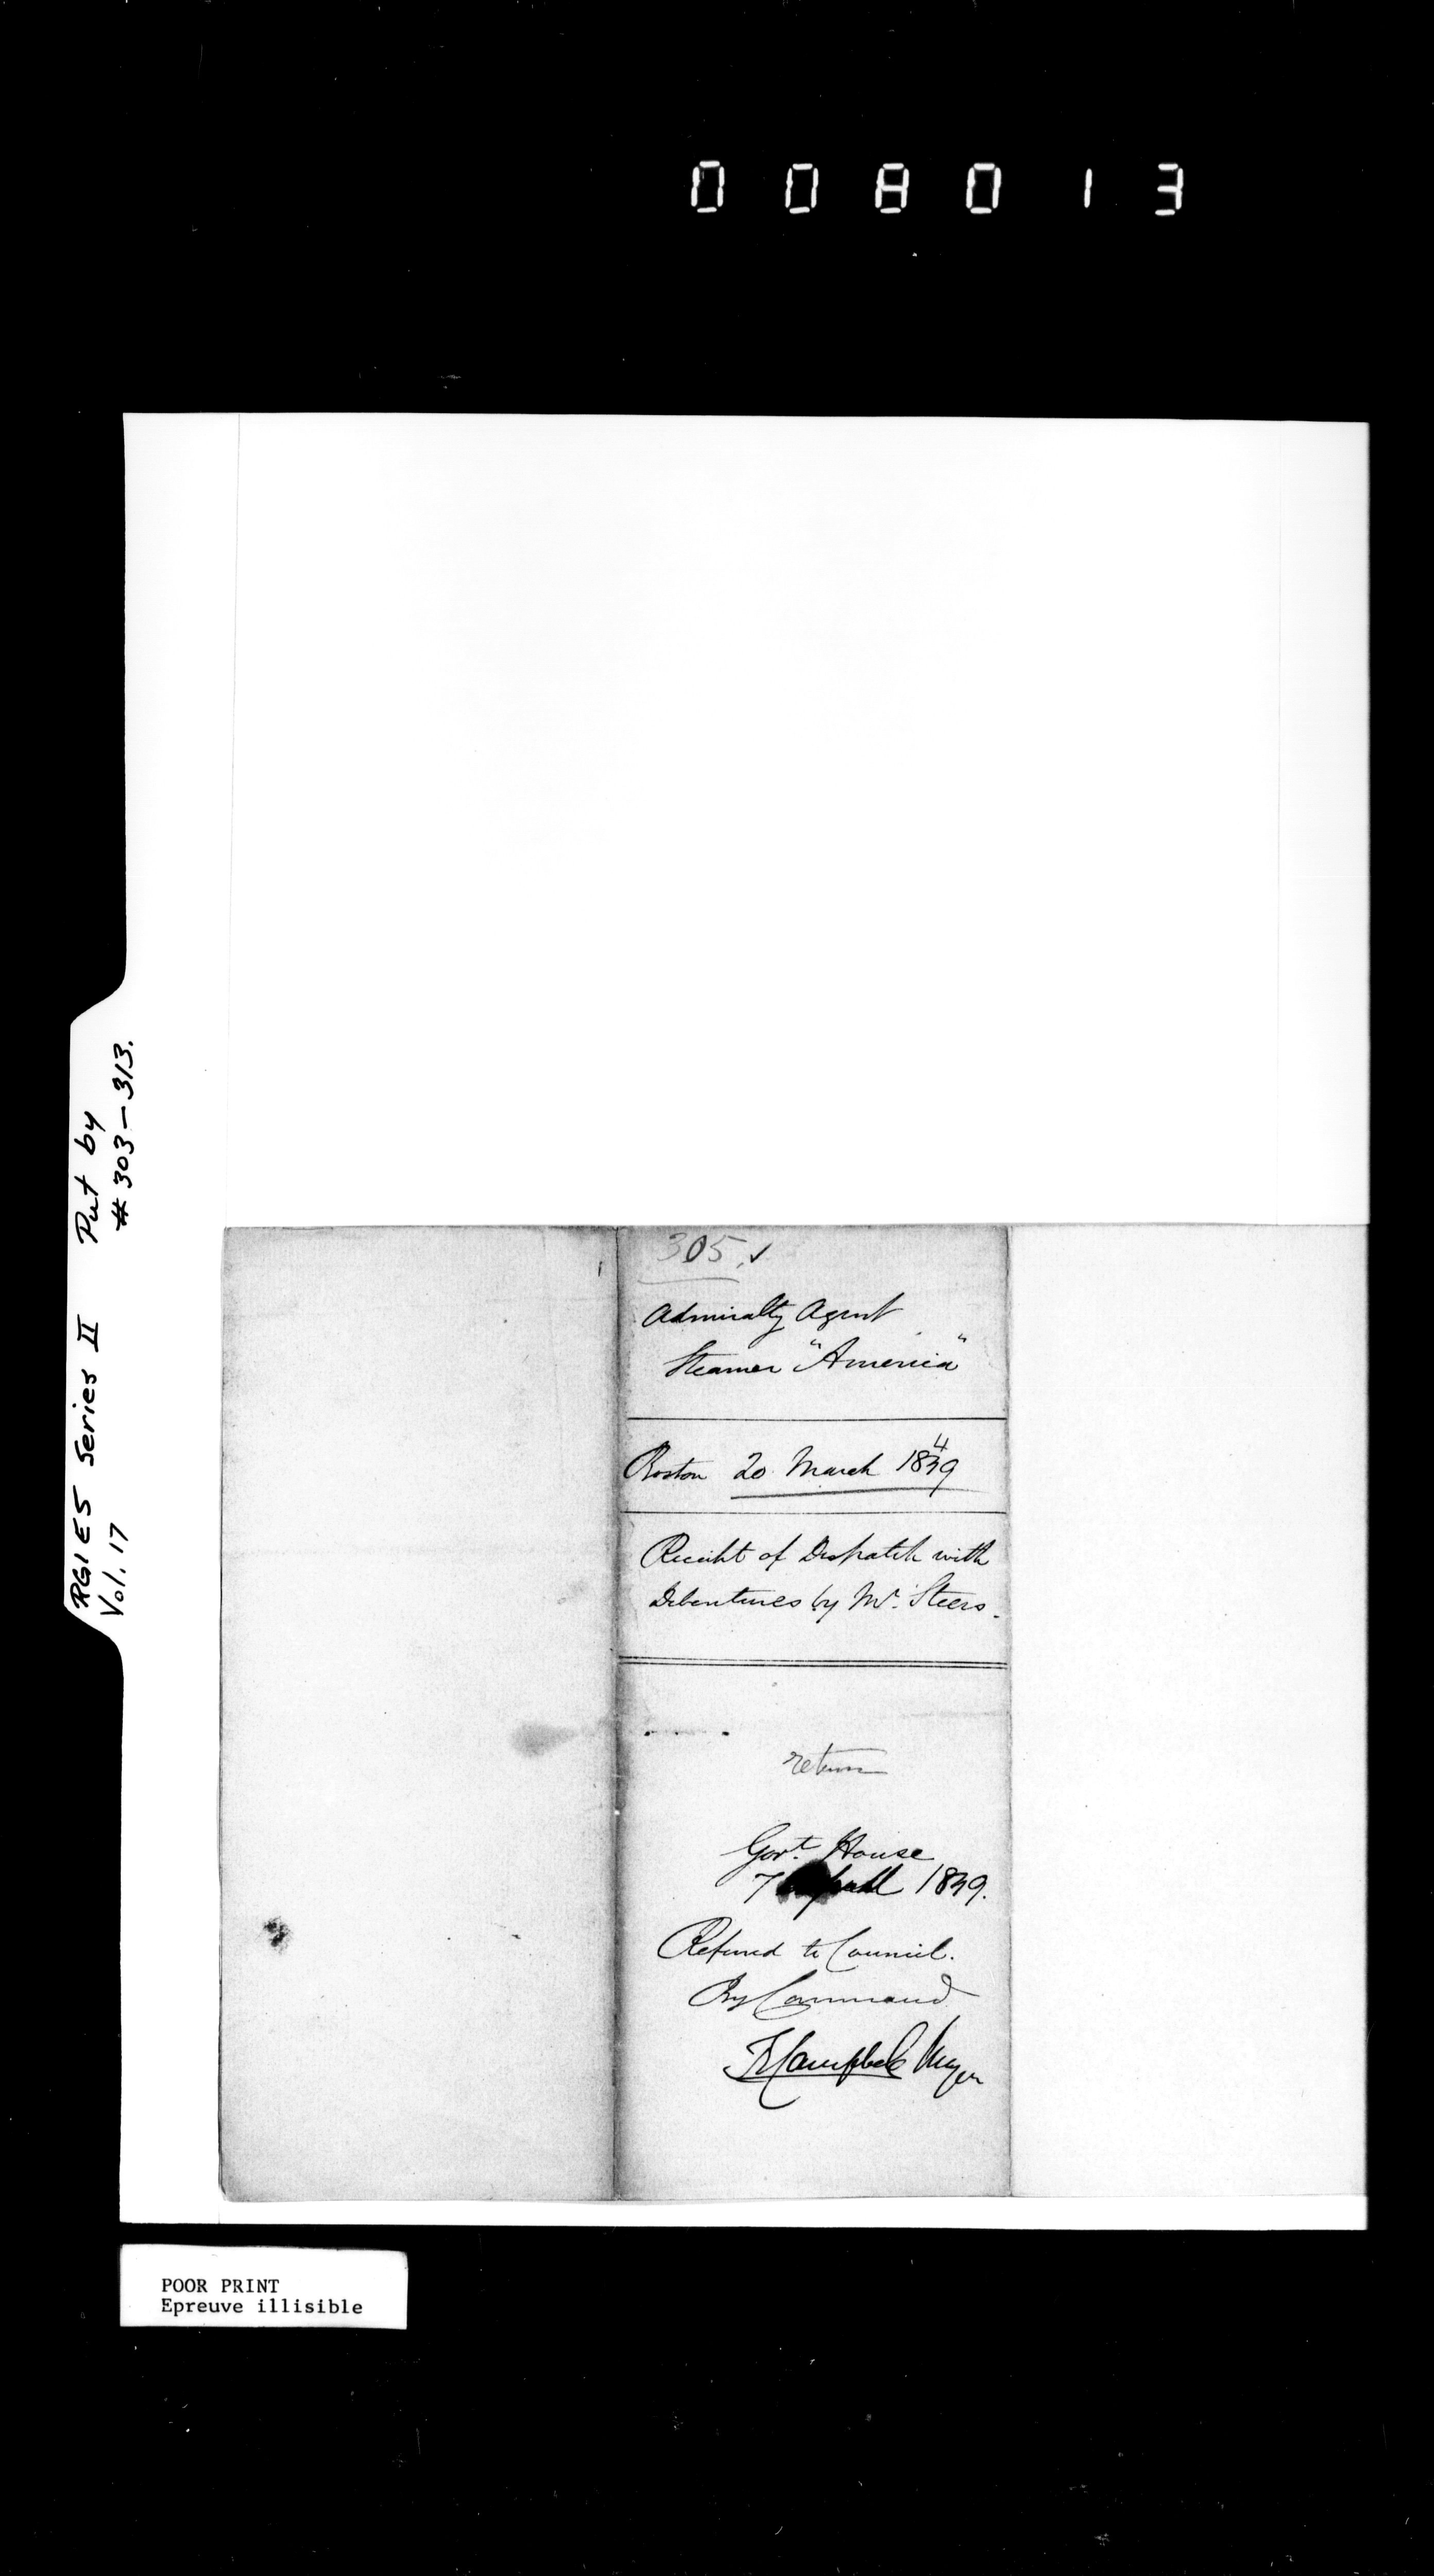 008013
RG1 E5 Series II Put by
Vol. 17 # 303-313.
305.
Admiralty Agent
Steamer "America"
Boston 20 March 1849
Receipt of Dispatch with
Debentures by Mr. Steers.
return
Govt. House
7 April 1849.
Referred to Council.
By Command
T Campbell
POOR PRINT
Epreuve illisible